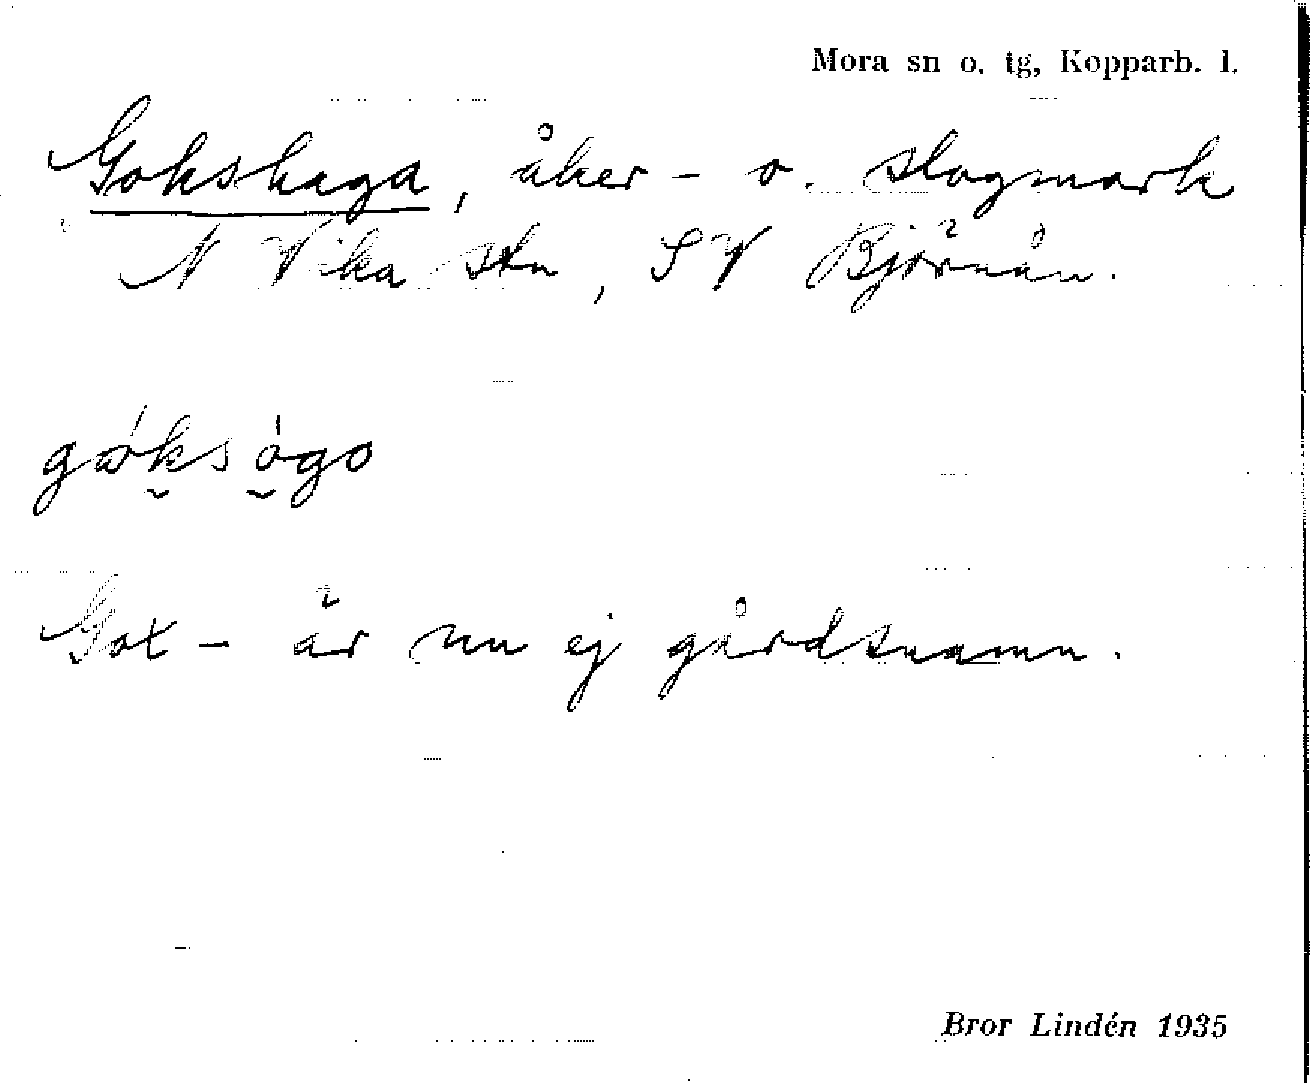 Mora sn o. tg, Kopparb. l.
Gokshaga, åker- o. slogmark
N Vika stn, SV Björnån.
goksogo
Gox- är nu ej gårdsnamn.
Bror Lindén 1935